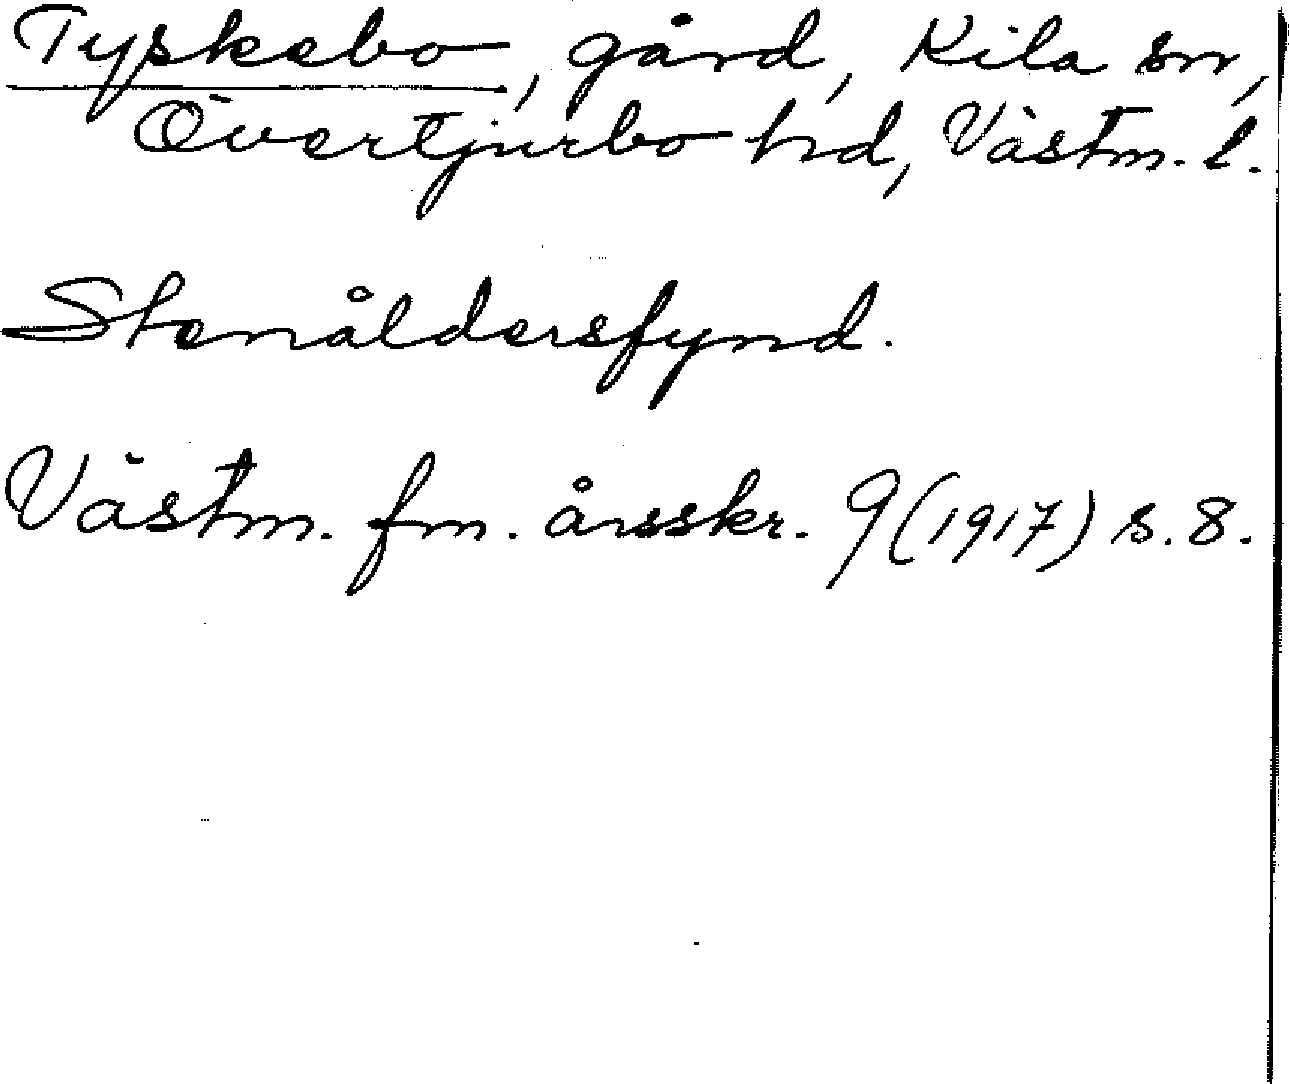 Tyskebo, gård, Kila sn,
Övertjurbo hd, Västm. l.
Stenåldersfynd.
Västm. fm. årsskr. 9 (1917) s. 8.